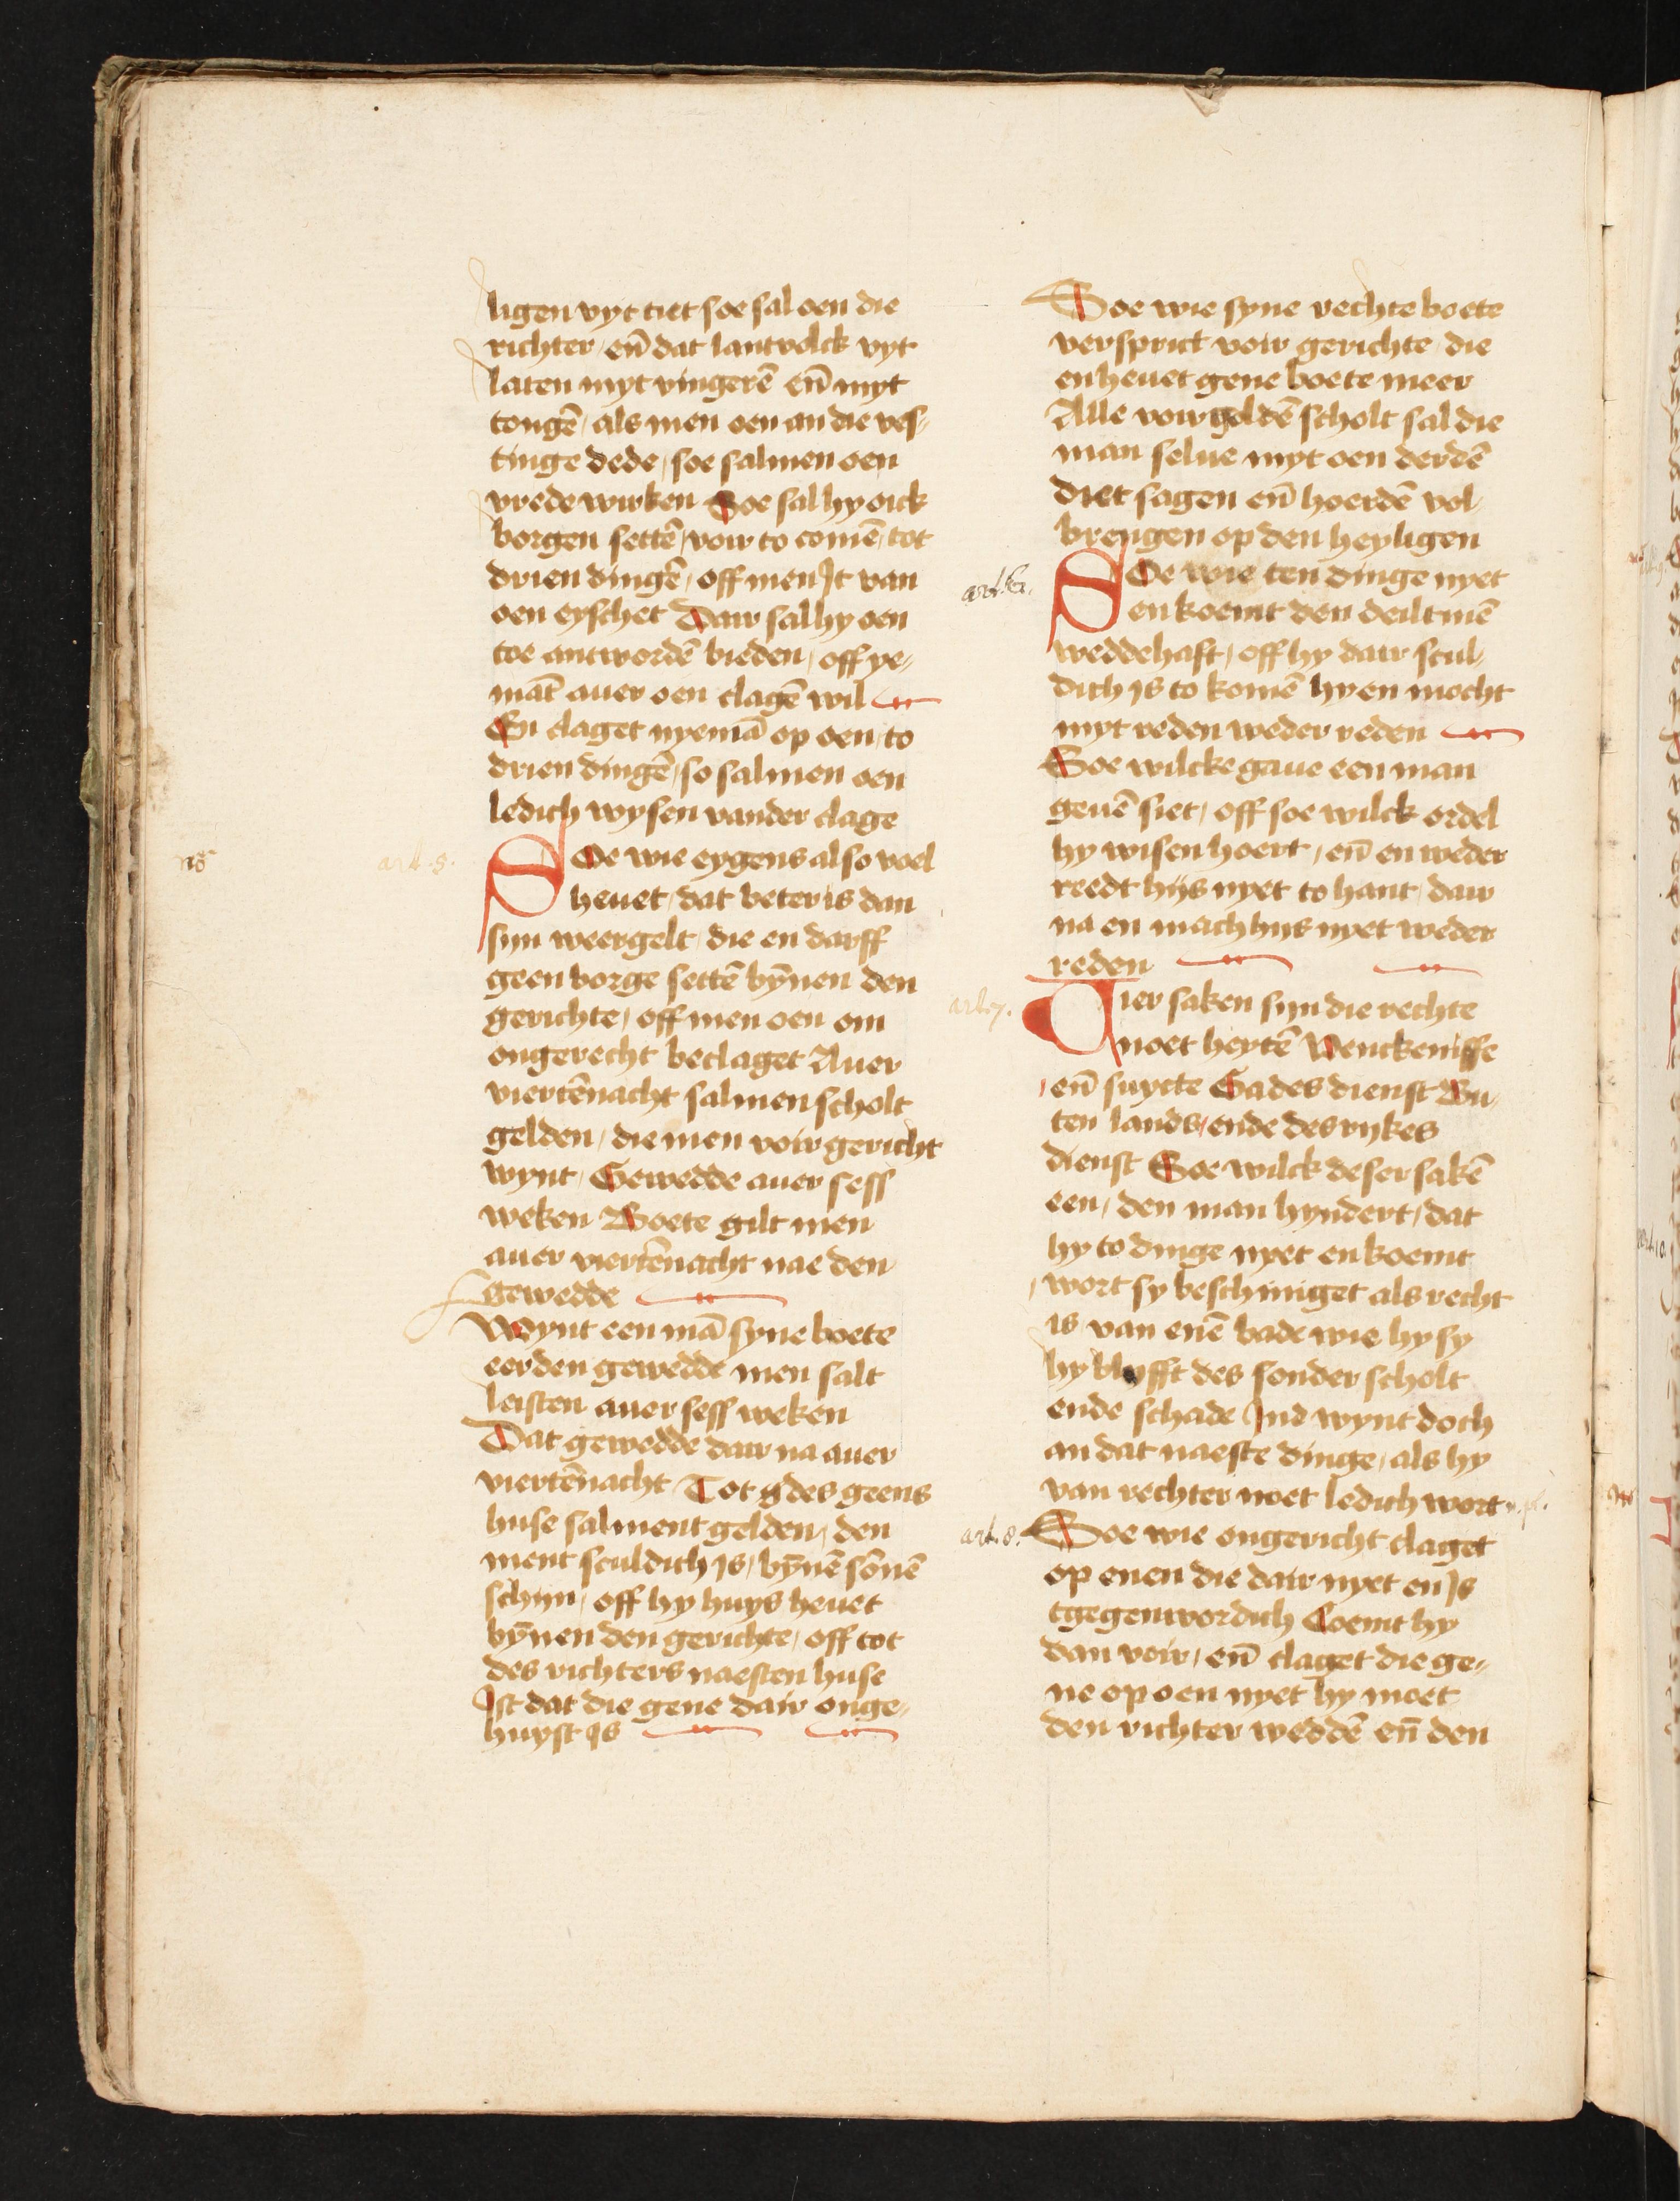 ligen vyt tict soe sal oen die
richter / en̄ dat lantvolck vyt
laten myt vingerē en̄ myt
tongē / als men oen an die ves⸗
tinge dede / soe salmen oen
vrede wirken Soe sal hy oick
borgen settē / voir to comē / tot
drien dingē / off men It van
oen eyschet Dair sal hy oen
toe antwordē bieden / off ye⸗
māt auer oen clagē wil
En claget nyemā op oen / to
drien dingē / so salmen oen
ledich wysen vander clage
nō
art. 5.
SOe wie eygens also voel
heuet / dat beter is dan
syn weergelt / die en darff
geen borge settē bȳnen den
gerichte / off men oen om
ongerecht beclaget Auer
viertēnacht salmen scholt
gelden / die men voir gericht
wynt / Gewedde auer sess
weken Boete gilt men
auer viertēnacht nae den
gewedde
Wynt een mā syne boete
eerden gewedde men salt
leisten auer sess weken
Dat gewedde dair na auer
viertēnacht Tot des geens
huse salment gelden / den
ment sculdich Is / bȳnē sōnē
schijn / off hy huys heuet
bȳnen den gerichte / off tot
des richters naesten huse
Ist dat die gene dair onge⸗
huyst Is
Soe wie syne rechte boete
versprict voir gerichte / die
en heuet gene boete meer
Alle voirgoldē scholt sal die
man selue myt oen derdē
diet sagen en̄ hoerdē vol
brengen op den heyligen
art. 6.
SOe wie ten dinge nyet
en koemt den deilt mē
weddehaft / off hy dair scul⸗
dich is to komē hy en mocht
myt reden weder reden
Soe wilcke gaue een man
geuē siet / off soe wilck ordel
hy wisen hoert / en̄ en weder
reedt hijs nyet to hant / dair
na en mach hijs nyet weder
reden
art. 7.
Vier saken syn die rechte
noet heytē Venckenisse
en̄ suycte Gades dienst Bu⸗
ten lands / ende des rykes
dienst Soe wilck deser sakē
een / den man hyndert / dat
hy to dinge nyet en koemt
wort sy beschiniget als recht
is van enē bade wie hy sy
hy blyfft des sonder scholt
ende schade Ind wynt doch
an dat naeste dinge / als hy
van rechter noet ledich wort
art. 8.
Soe wie ongericht claget
op enen die dair nyet en Is
tgegenwordich Coemt hy
dan voir / en̄ claget die ge⸗
ne op oen nyet hy moet
den richter weddē en̄ den